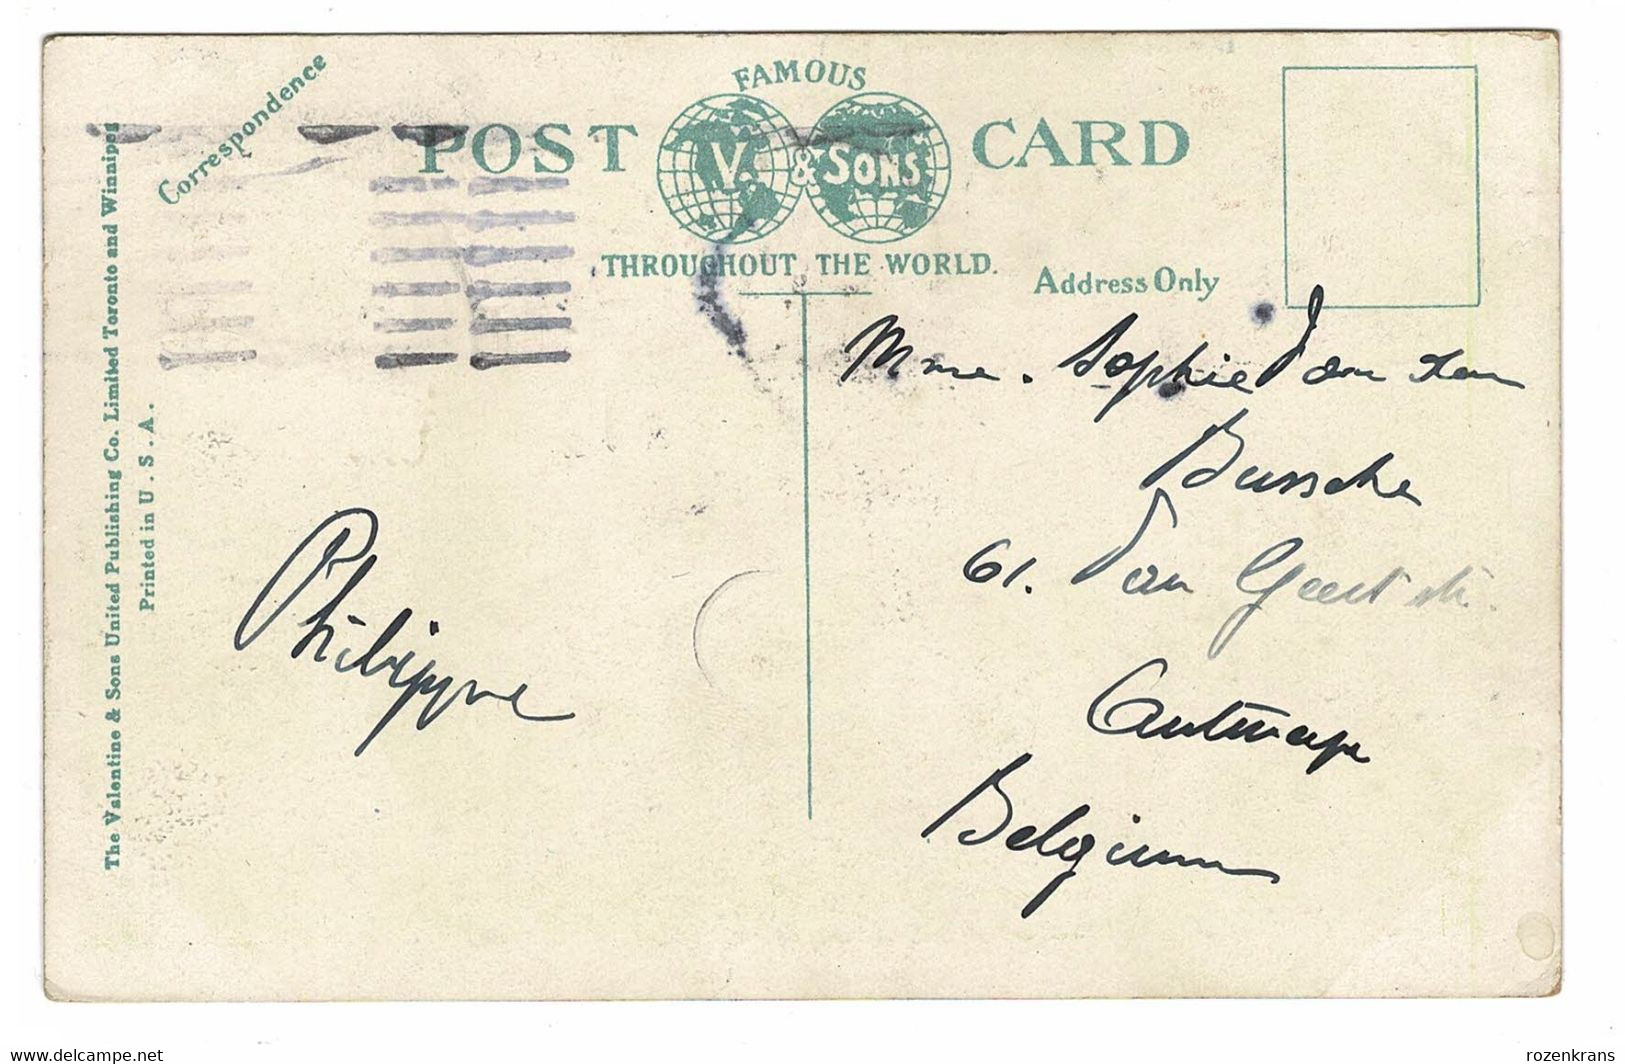 Correspondence
FAMOUS
POST V. & SONS CARD
THROUGHOUT THE WORLD.
Address Only
The Valentine & Sons United Publishing Co. Limited Toronto and Winnipeg
Printed in U.S.A.
Philippe
Mme. Sophie Van den
Bussche
61. Van Geert str.
Antwerp
Belgium
www.delcampe.net
rozenkrans